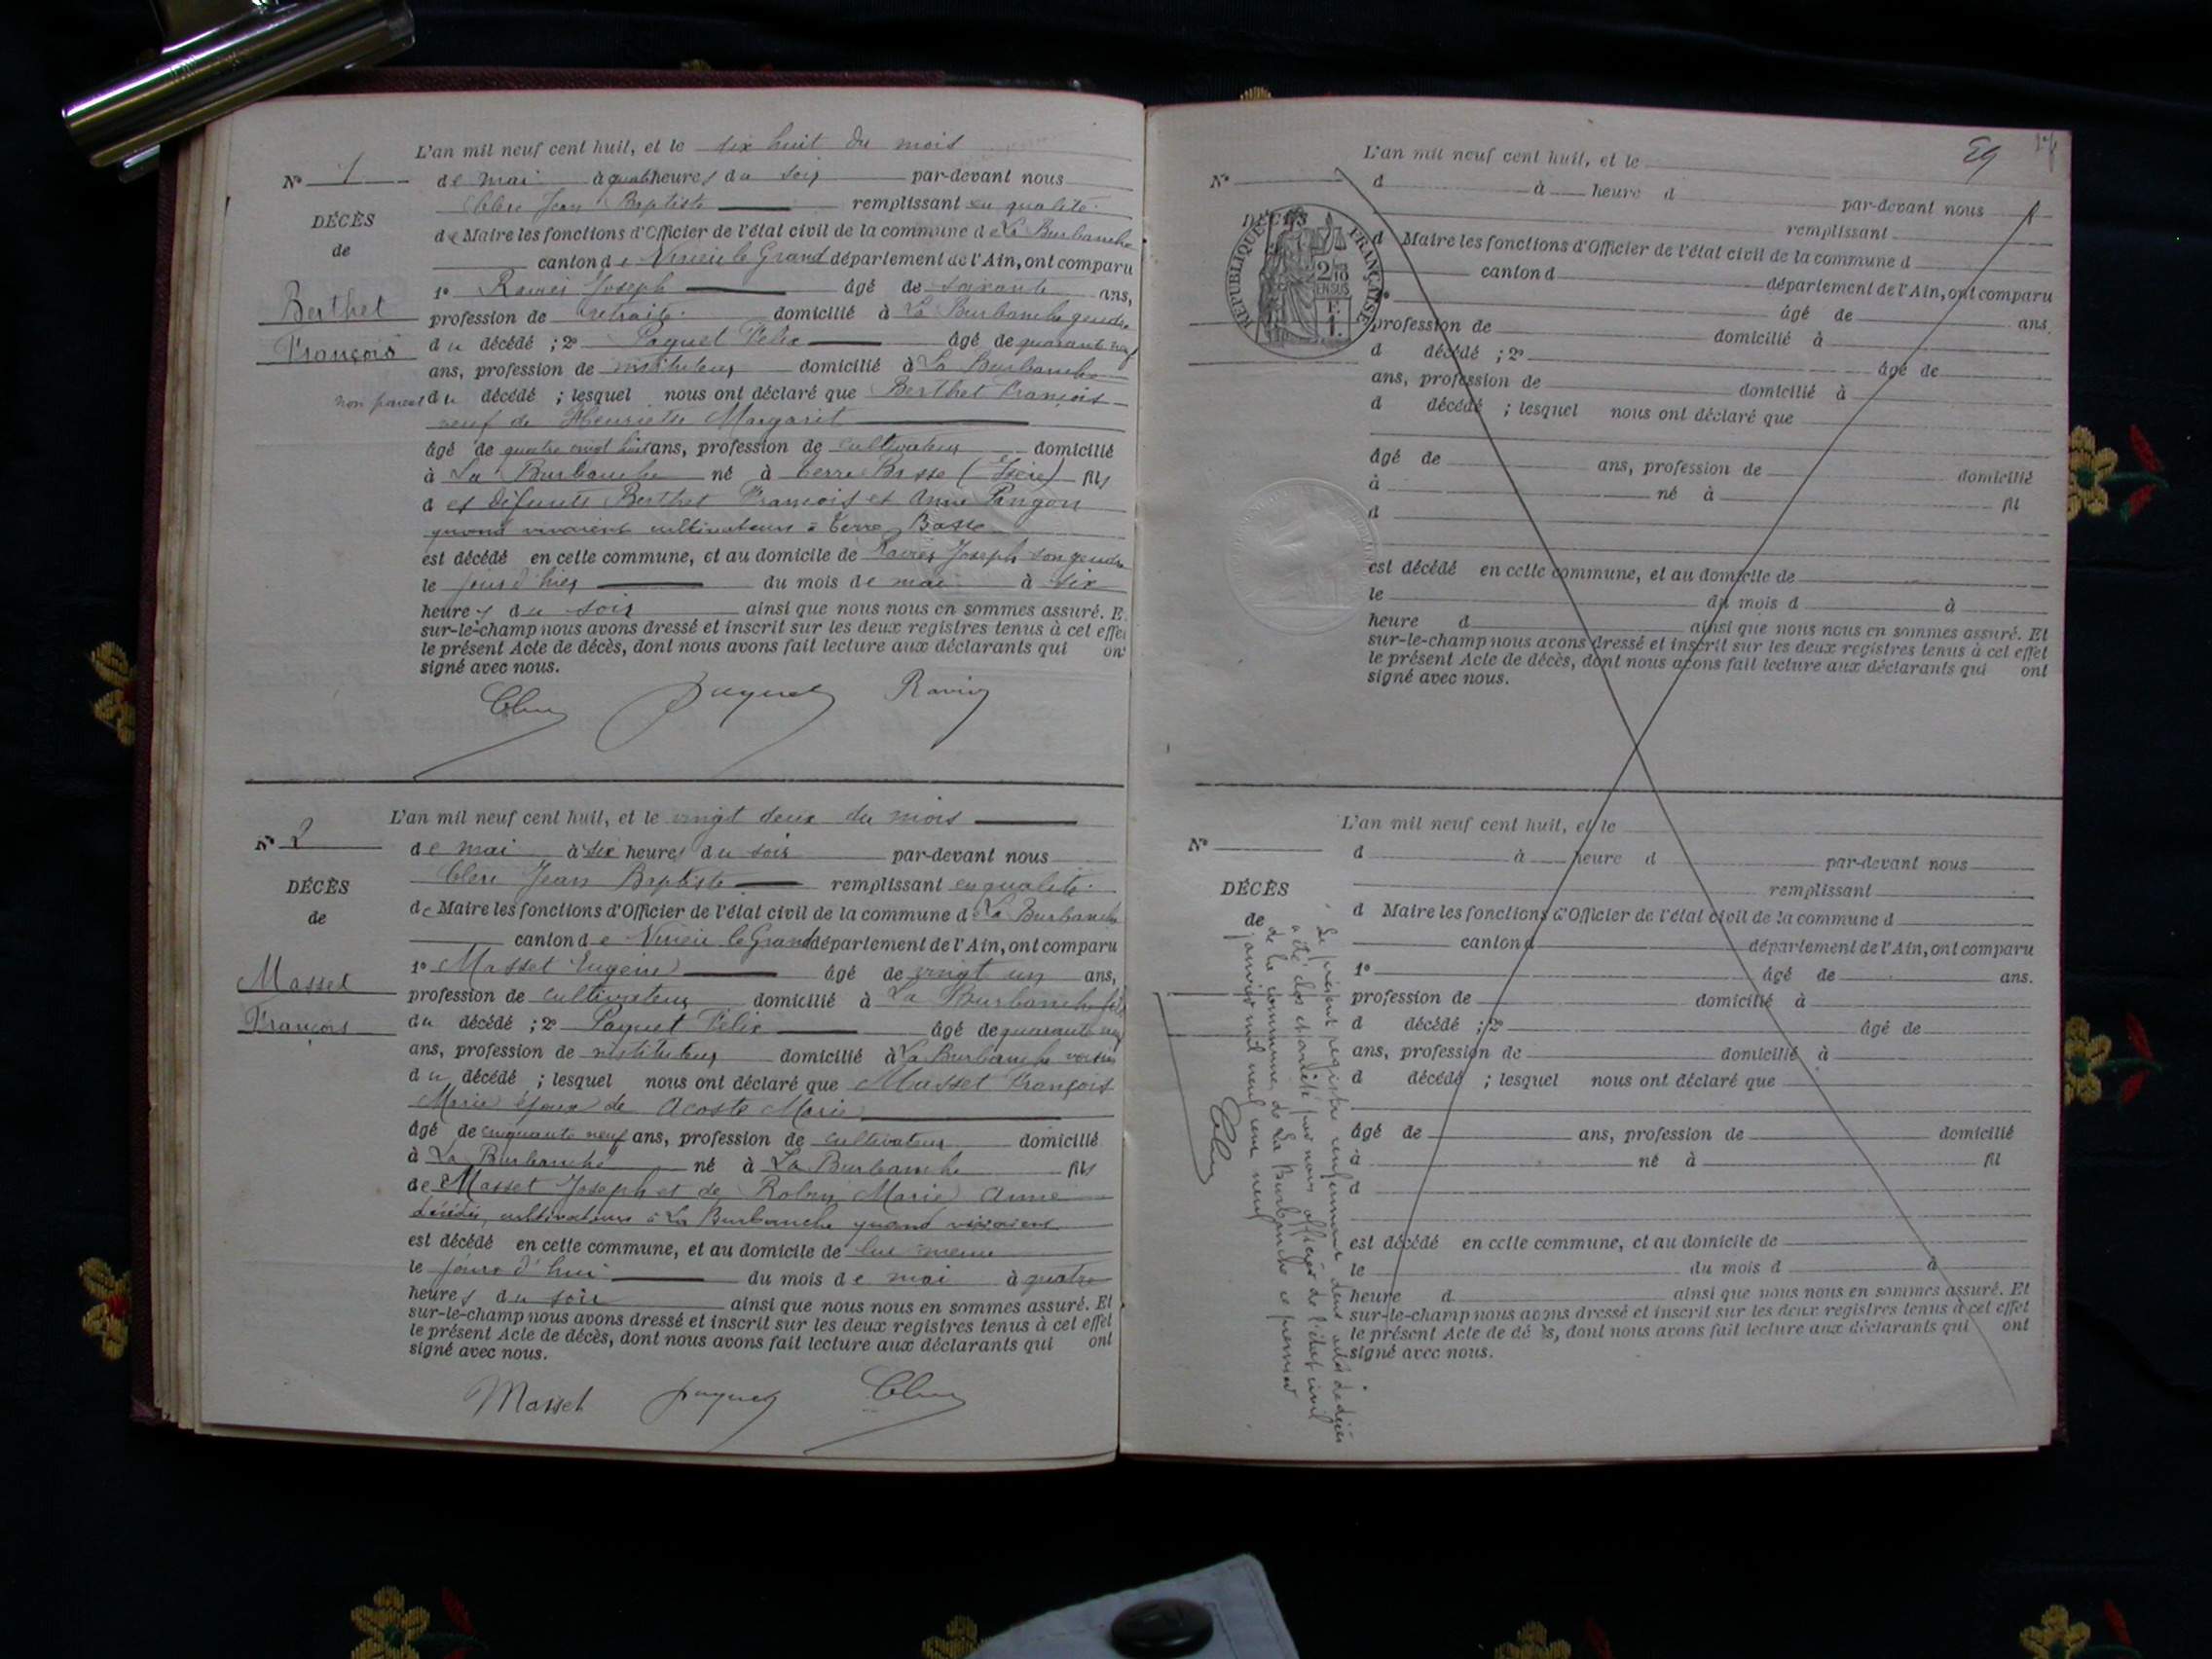 L'an mil neuf cent huit, et le dix huit du mois
N° 1
de mai à quatre heures du soir par-devant nous
Clerc Jean Baptiste remplissant en qualité
DÉCÈS
de Maire les fonctions d'Officier de l'état civil de la commune de La Burbanche
de
canton de Virieu le Grand département de l'Ain, ont comparu
1° Joseph âgé de soixante ans,
Berthet
profession de retraité domicilié à La Burbanche gendre
François
du décédé ; 2° Paquet Félix âgé de quarante neuf
ans, profession de instituteur domicilié à La Burbanche
non parent du décédé ; lesquel nous ont déclaré que Berthet François
veuf de Henriette Margarit
âgé de quatre vingt huit ans, profession de cultivateur domicilié
à La Burbanche né à Terre Basse (Isère) fils
des défunts Berthet François et Anne Pangon
quand vivaient cultivateurs à Terre Basse
est décédé en cette commune, et au domicile de Joseph son gendre
le jour d'hier du mois de mai à six
heures du soir ainsi que nous nous en sommes assuré. E
sur-le-champ nous avons dressé et inscrit sur les deux registres tenus à cet effet
le présent Acte de décès, dont nous avons fait lecture aux déclarants qui ont
signé avec nous.
Clerc Paquet
L'an mil neuf cent huit, et le vingt deux du mois
N° 2
de mai à six heures du soir par-devant nous
Clerc Jean Baptiste remplissant en qualité
DÉCÈS
de Maire les fonctions d'Officier de l'état civil de la commune de La Burbanche
de
canton de Virieu le Grand département de l'Ain, ont comparu
1° Masset Eugène âgé de vingt un ans,
Masset
profession de cultivateur domicilié à La Burbanche fils
François
du décédé ; 2° Paquet Félix âgé de quarante neuf
ans, profession de instituteur domicilié à La Burbanche voisin
du décédé ; lesquel nous ont déclaré que Masset François
Marie époux de Acoste Marie
âgé de cinquante neuf ans, profession de cultivateur domicilié
à La Burbanche né à La Burbanche fils
de Masset Joseph et de Marie Anne
décédés, cultivateurs à La Burbanche quand vivaient
est décédé en cette commune, et au domicile de lui même
le jour d'hui du mois de mai à quatre
heures du soir ainsi que nous nous en sommes assuré. Et
sur-le-champ nous avons dressé et inscrit sur les deux registres tenus à cet effet
le présent Acte de décès, dont nous avons fait lecture aux déclarants qui ont
signé avec nous.
Masset Paquet Clerc
L'an mil neuf cent huit, et le
N°
d à heure d par-devant nous
DÉCÈS
remplissant
RÉPUBLIQUE FRANÇAISE
d Maire les fonctions d'Officier de l'état civil de la commune d
canton d département de l'Ain, ont comparu
1° âgé de ans.
profession de domicilié à
d décédé ; 2° âgé de
ans, profession de domicilié à
d décédé ; lesquel nous ont déclaré que
âgé de ans, profession de domicilié
à né à fil
d
est décédé en cette commune, et au domicile de
le du mois d à
heure d ainsi que nous nous en sommes assuré. Et
sur-le-champ nous avons dressé et inscrit sur les deux registres tenus à cet effet
le présent Acte de décès, dont nous avons fait lecture aux déclarants qui ont
signé avec nous.
L'an mil neuf cent huit, et le
N°
d à heure d par-devant nous
remplissant
DÉCÈS
d Maire les fonctions d'Officier de l'état civil de la commune d
de
canton d département de l'Ain, ont comparu
1° âgé de ans.
profession de domicilié à
d décédé ; 2° âgé de
ans, profession de domicilié à
d décédé ; lesquel nous ont déclaré que
âgé de ans, profession de domicilié
à né à fil
d
est décédé en cette commune, et au domicile de
le du mois d à
heure d ainsi que nous nous en sommes assuré. Et
sur-le-champ nous avons dressé et inscrit sur les deux registres tenus à cet effet
le présent Acte de dé ès, dont nous avons fait lecture aux déclarants qui ont
signé avec nous.
Le présent registre renfermant deux actes de décès
a été clos et arrêté par nous officier de l'état civil
de la commune de La Burbanche ce premier
janvier mil neuf cent neuf
Clerc